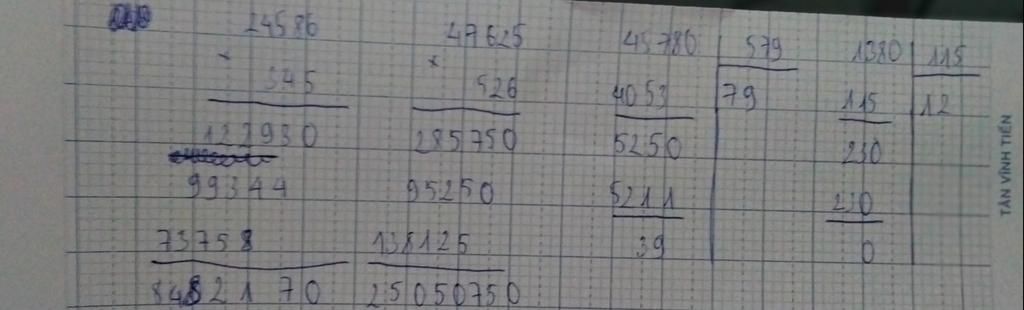 24586
×
345
122930
99344
73758
8482170
47625
×
526
285750
95250
138125
25050750
45786 579
4053 79
5250
5211
39
1380 115
115 12
230
230
0
TÂN VĨNH TIẾN